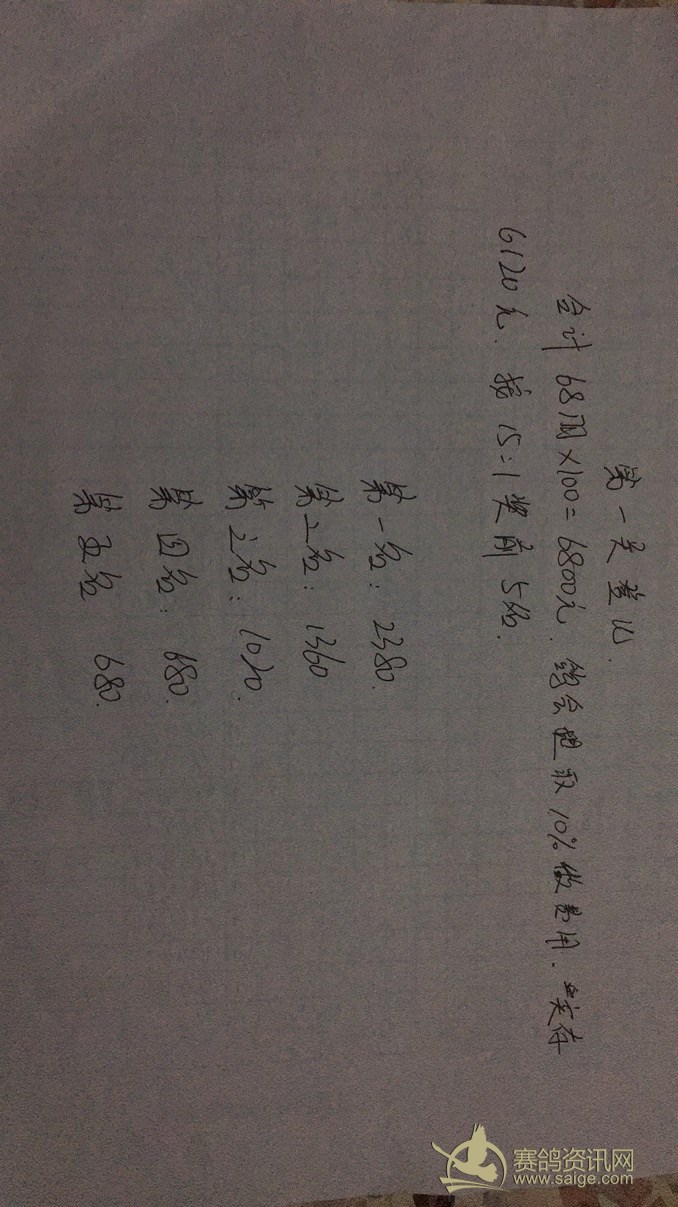 第一关登记.
合计 68羽×100=6800元. 鸽会提取 10%做费用. 实存
6120元. 按 15:1 奖前 5名.
第一名: 2380.
第二名: 1360
第三名: 1020.
第四名: 680.
第五名 680.
赛鸽资讯网
www.saige.com